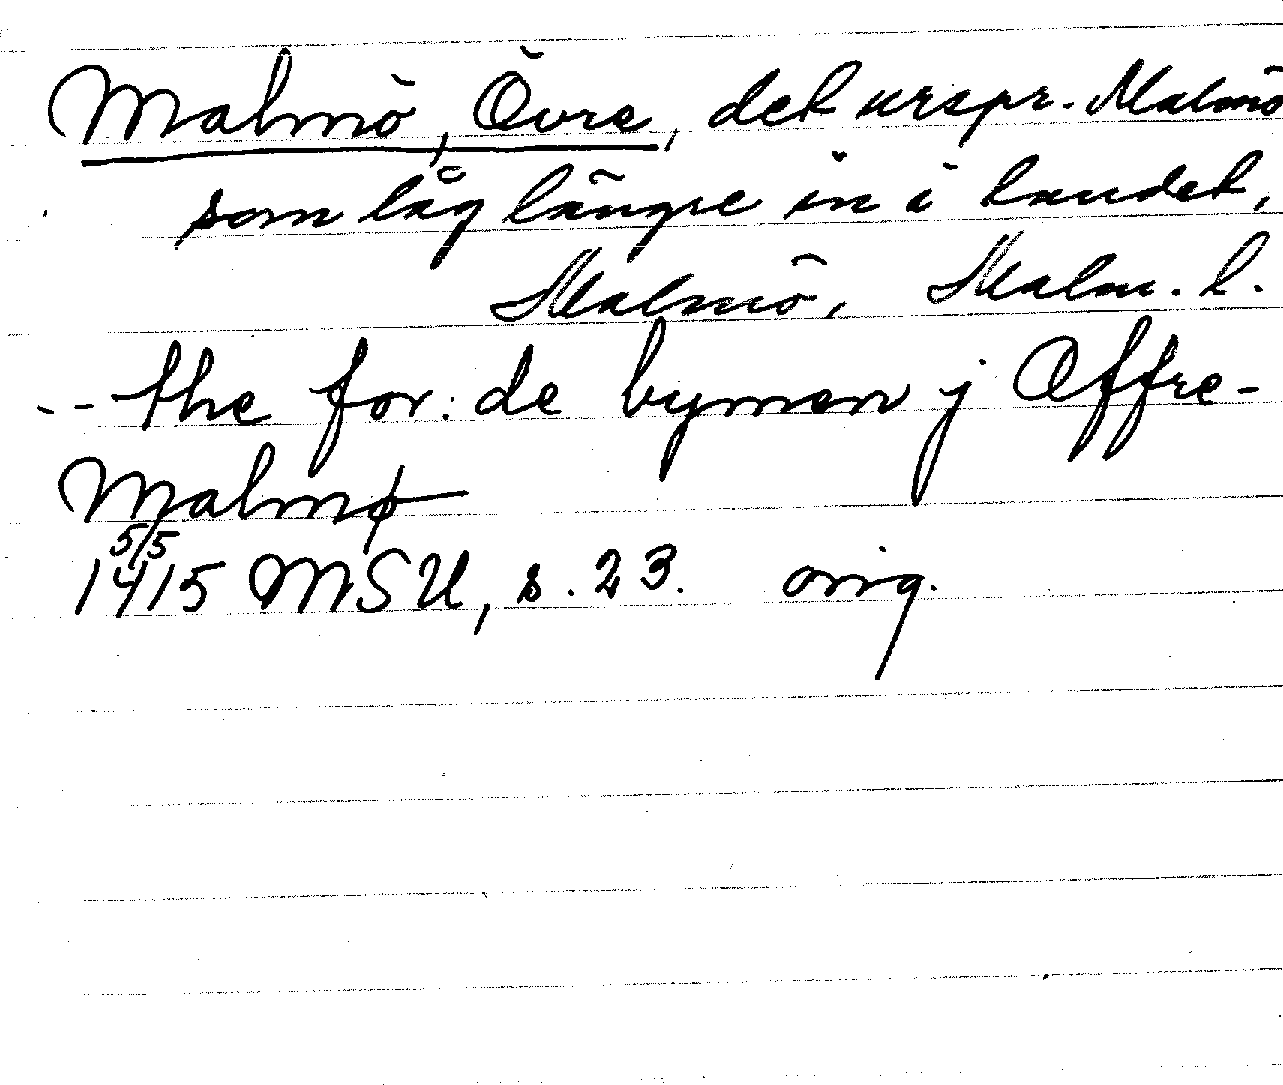 Malmö, Övre, det urspr. Malmö
som låg längre in i landet,
Malmö, Malm. l.
-- the for: de bymen j Øffre-
Malmø
5/5
1415 MSU, s. 23. orig.